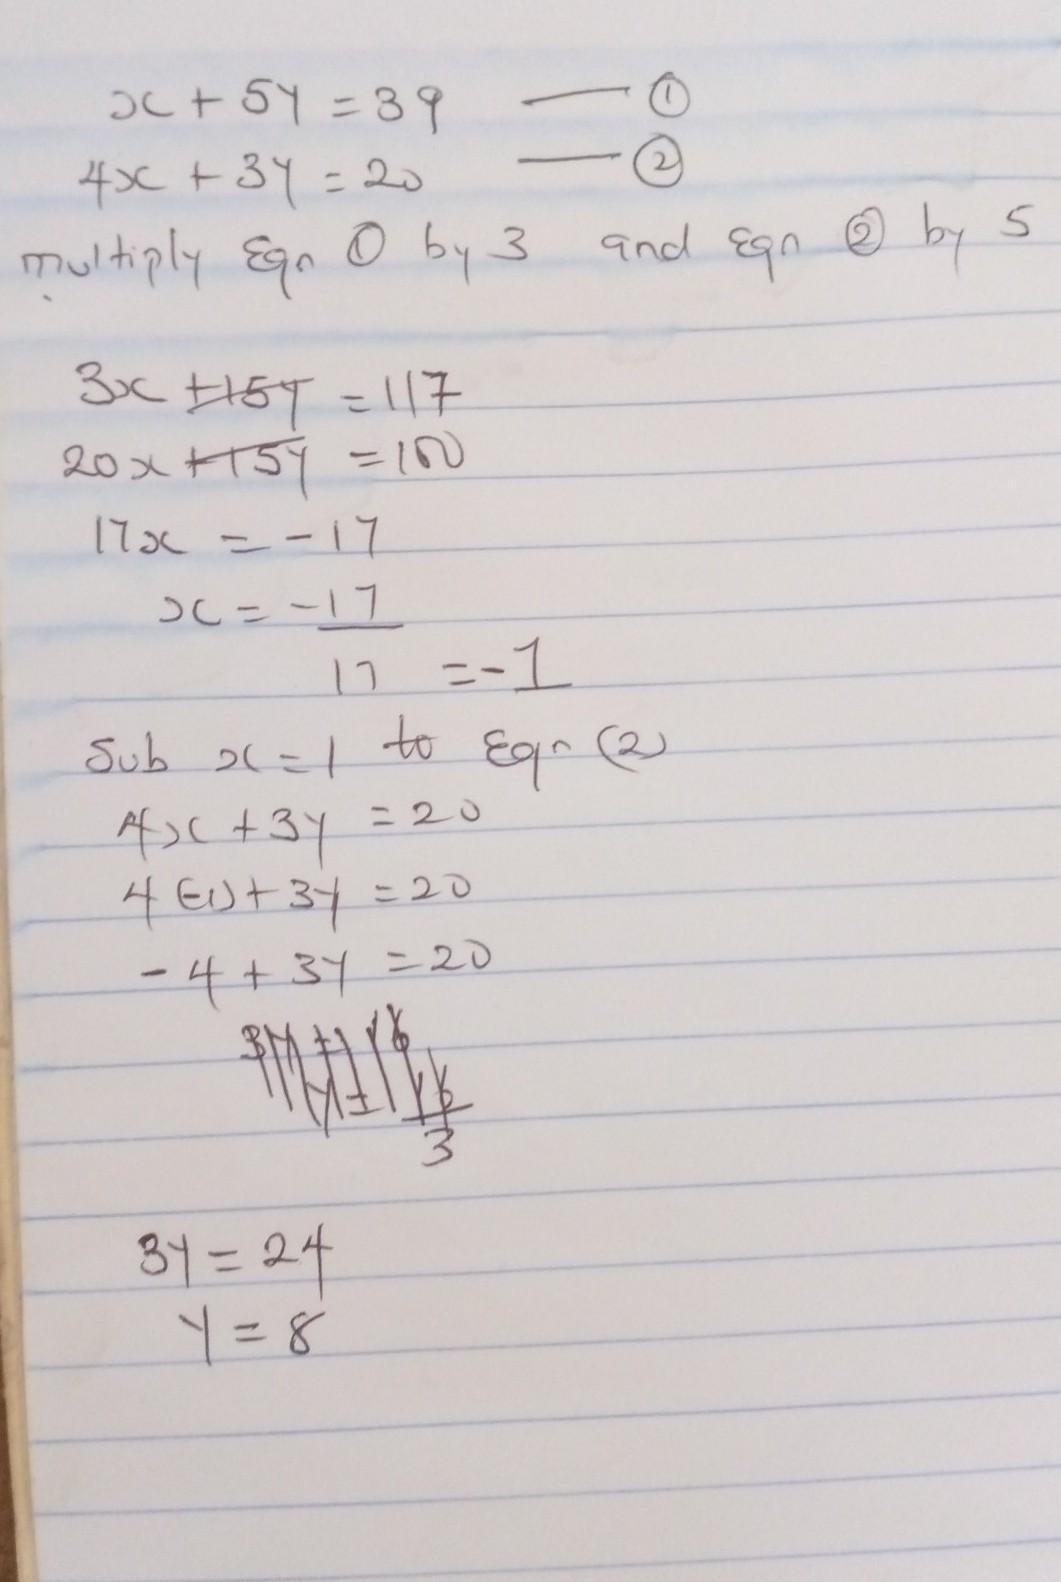 x + 5y = 39 — ①
4x + 3y = 20 — ②
multiply Eqn ① by 3 and Eqn ② by 5
3x +15y = 117
20x +15y = 100
17x = -17
x = -17
17 = -1
Sub x = 1 to Eqn (2)
4x + 3y = 20
4(-1) + 3y = 20
-4 + 3y = 20
3
3y = 24
y = 8